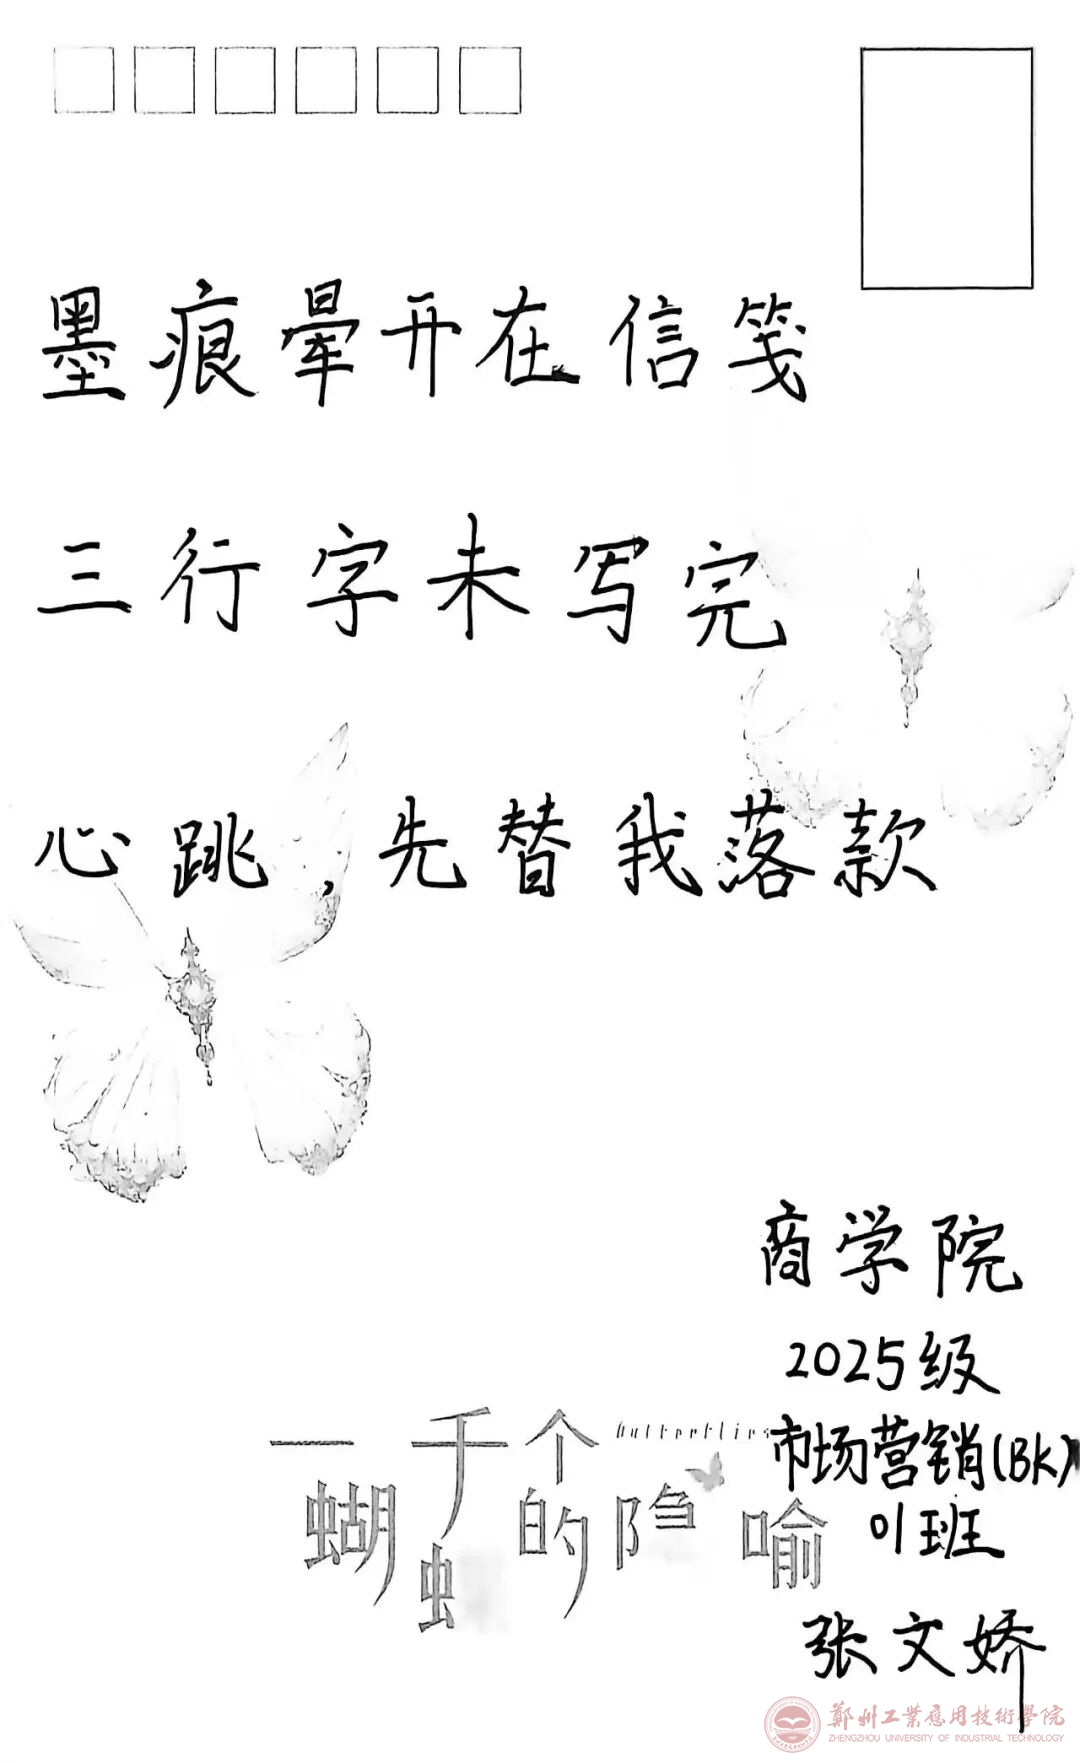 墨痕晕开在信笺
三行字未写完
心跳,先替我落款
商学院
2025级
市场营销(BK)
01班
张文娇
一千个
Butterflies
蝴
的隐喻
鄭州工業應用技術學院
ZHENGZHOU UNIVERSITY OF INDUSTRIAL TECHNOLOGY